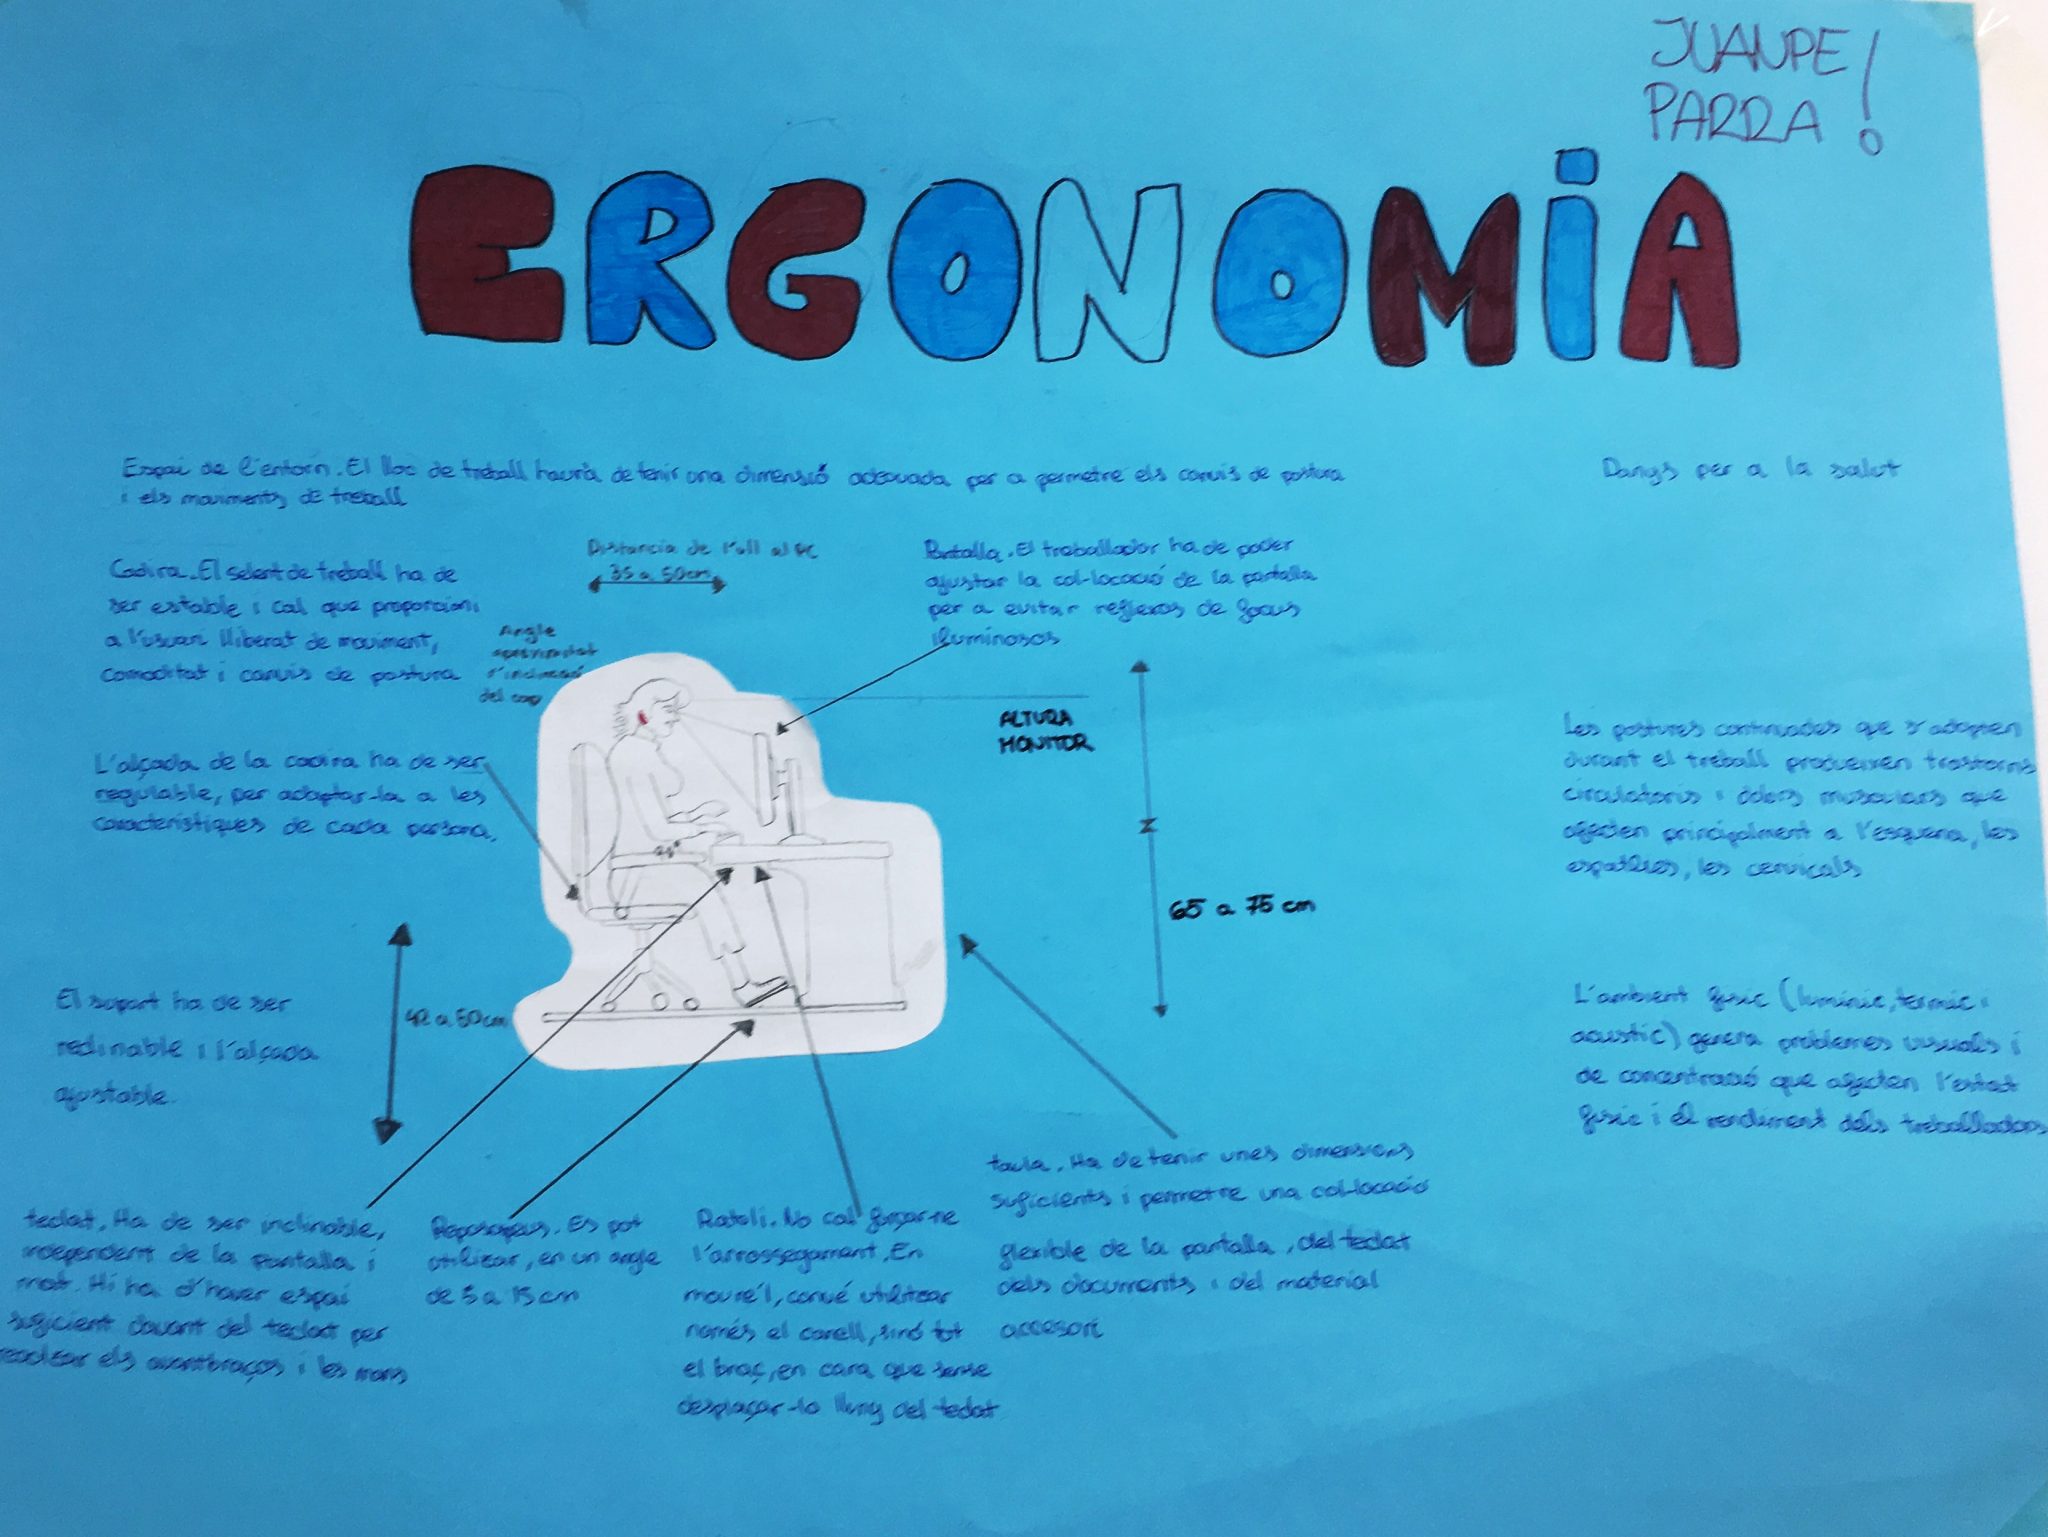 JUANPE
PARRA!
ERGONOMiA
Espai de l'entorn. El lloc de treball haurà de tenir una dimensió adequada per a permetre els canvis de postura
i els moviments de treball
Danys per a la salut
Cadira. El seient de treball ha de
ser estable i cal que proporcioni
a l'usuari lliberat de moviment,
comoditat i canvis de postura
L'alçada de la cadira ha de ser
regulable, per adaptar-la a les
característiques de cada persona.
Distancia de l'ull al PC
35 a 50cm
Angle
aproximadat
d'inclinació
del cap
Pantalla. El treballador ha de poder
ajustar la col·locació de la pantalla
per a evitar reflexos de focus
iluminosos
ALTURA
MONITOR
65 a 75 cm
Les postures continuades que s'adopten
durant el treball produeixen trastorns
circulatoris i dolors musculars que
afecten principalment a l'esquena, les
espatlles, les cervicals
L'ambient fisic (luminic, termic i
acustic) genera problemes visuals i
de concentració que afecten l'estat
fisic i el rendiment dels treballadors
El suport ha de ser
reclinable i l'alçada
ajustable.
42 a 50cm
teclat. Ha de ser inclinable,
independent de la pantalla i
mat. Hi ha d'haver espai
suficient davant del teclat per
recolzar els avantbraços i les mans
Reposapeus. Es pot
utilizar, en un angle
de 5 a 15cm
Ratoli. No cal forçar-ne
l'arrossegament. En
moure'l, convé utilitzar
només el canell, sinó tot
el braç, en cara que sense
desplaçar-lo lluny del teclat
taula. Ha de tenir unes dimensions
suficients i permetre una col·locació
flexible de la pantalla, del teclat
dels documents i del material
accesori